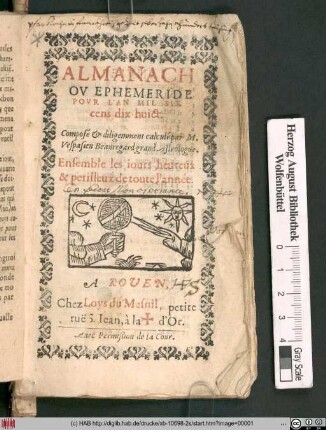 ALMANACH
OV EPHEMERIDE
POVR L'AN MIL SIX
cens dix huict.
Composé & diligemment calculé par M.
Vespasien Beauregard grand Astrologue.
Ensemble les iours heureux
& perilleux de toute l'année.
A ROVEN,
Chez Loys du Mesnil, petite
ruë S. Iean, à la ✠ d'Or.
Auec Permission de la Cour.
Herzog August Bibliothek
Wolfenbüttel
0
1
2
3
4
Gray Scale
(c) HAB http://diglib.hab.de/drucke/xb-10698-2s/start.htm?image=00001